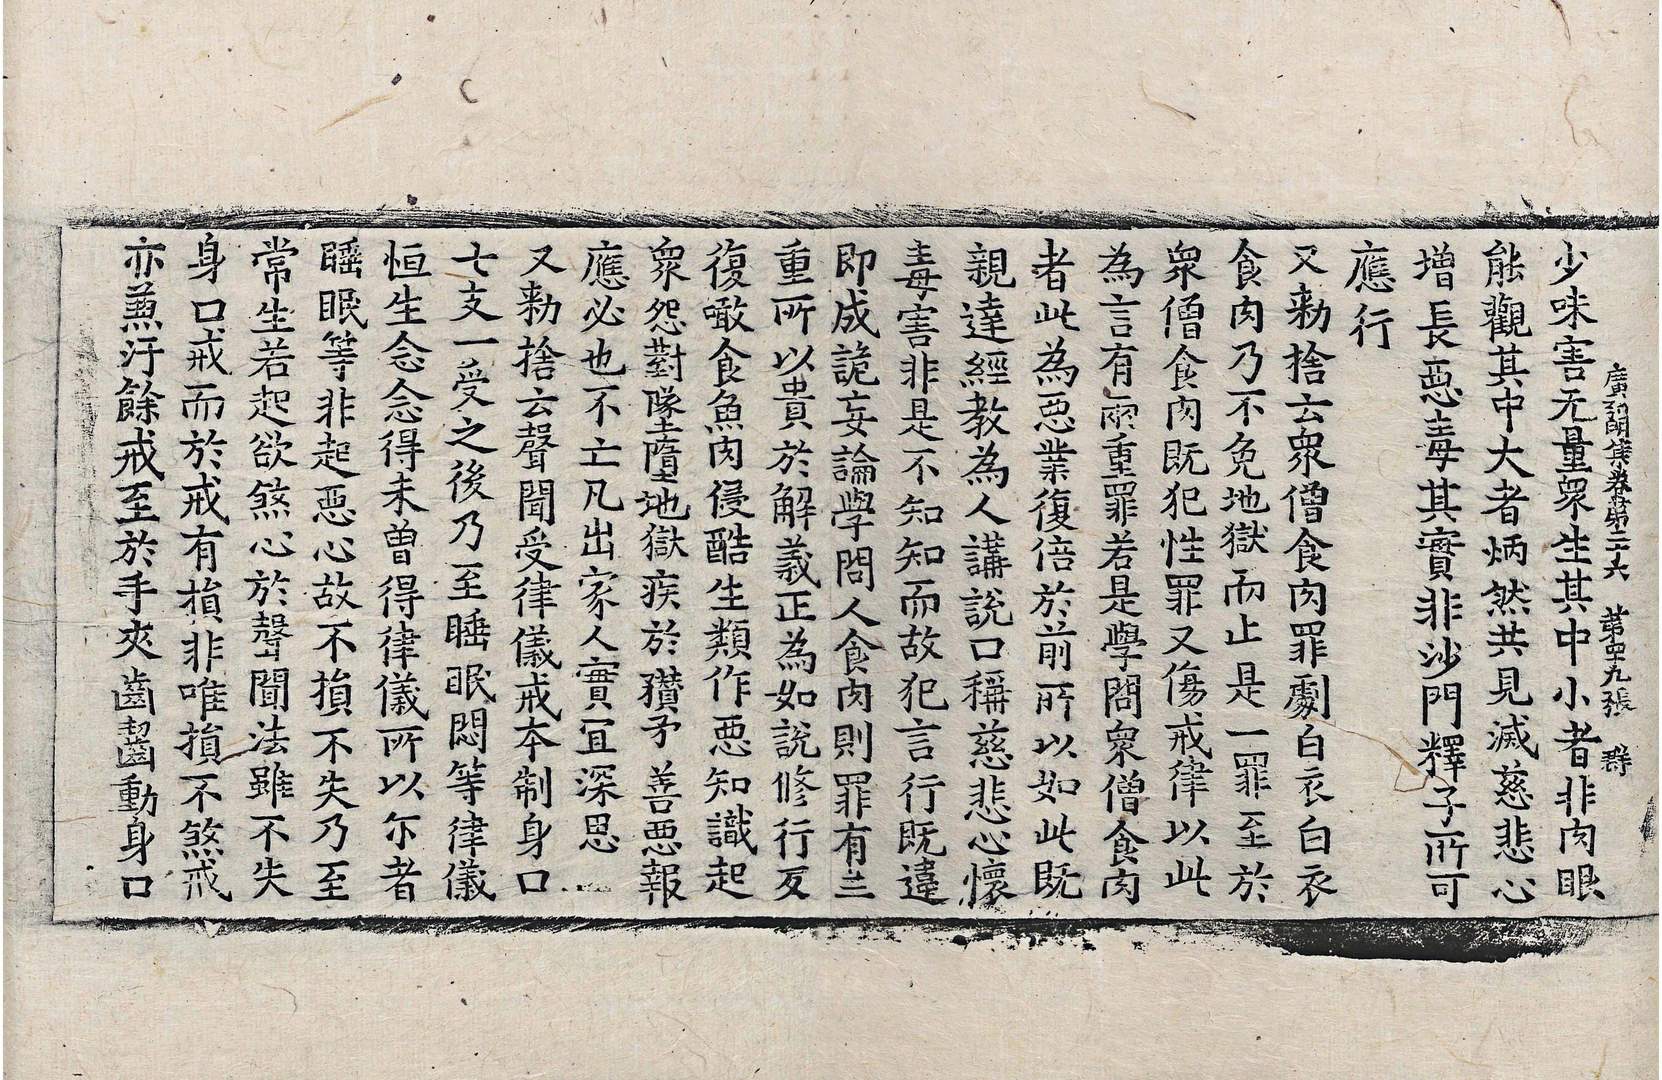 廣弘明集卷第二十六 第四十九張 群
少味害无量衆生其中小者非肉眼
能觀其中大者炳然共見滅慈悲心
增長惡毒其實非沙門釋子所可
應行
又勑捨云衆僧食肉罪劇白衣白衣
食肉乃不免地獄而止是一罪至於
衆僧食肉既犯性罪又傷戒律以此
為言有兩重罪若是學問衆僧食肉
者此為惡業復倍於前所以如此既
親達經教為人講說口稱慈悲心懷
毒害非是不知知而故犯言行既違
即成詭妄論學問人食肉則罪有三
重所以貴於解義正為如說修行反
復噉食魚肉侵酷生類作惡知識起
衆怨對墜墮地獄疾於矛善惡報
應必也不亡凡出家人實宜深思
又勑捨云聲聞受律儀戒本制身口
七支一受之後乃至睡眠悶等律儀
恒生念念得未曾得律儀所以尒者
睡眠等非起惡心故不損不失乃至
常生若起欲煞心於聲聞法雖不失
身口戒而於戒有損非唯損不煞戒
亦兼汙餘戒至於手夾齒齧動身口